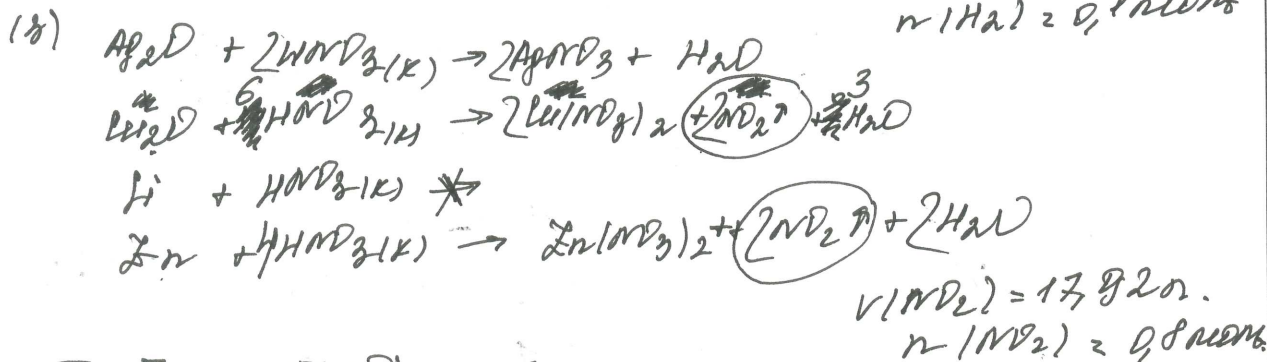 n(H2) = 0,8 моль
(3) Ag2O + 2HNO3(к) → 2AgNO3 + H2O
Cu2O + 6HNO3(к) → 2Cu(NO3)2 + 2NO2↑ + 3H2O
Si + HNO3(к) ↛
Zn + 4HNO3(к) → Zn(NO3)2 + 2NO2↑ + 2H2O
V(NO2) = 17,92 л.
n(NO2) = 0,8 моль.